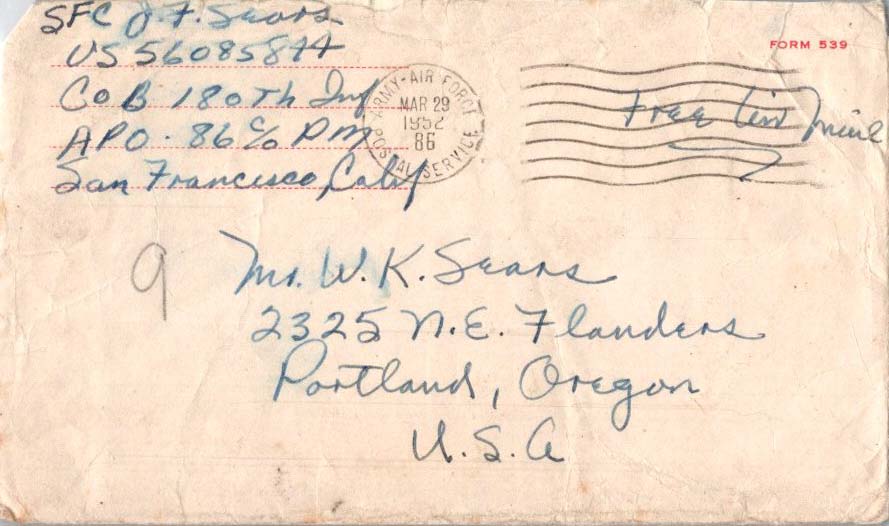 SFC J. F. Sears
US 56085844
Co B 180th Inf
APO - 86 c/o PM
San Francisco Calif
ARMY-AIR FORCE
POSTAL SERVICE
MAR 29
1952
86
FORM 539
Free Air Mail
9
Mr. W. K. Sears
2325 N.E. Flanders
Portland, Oregon
U.S.A